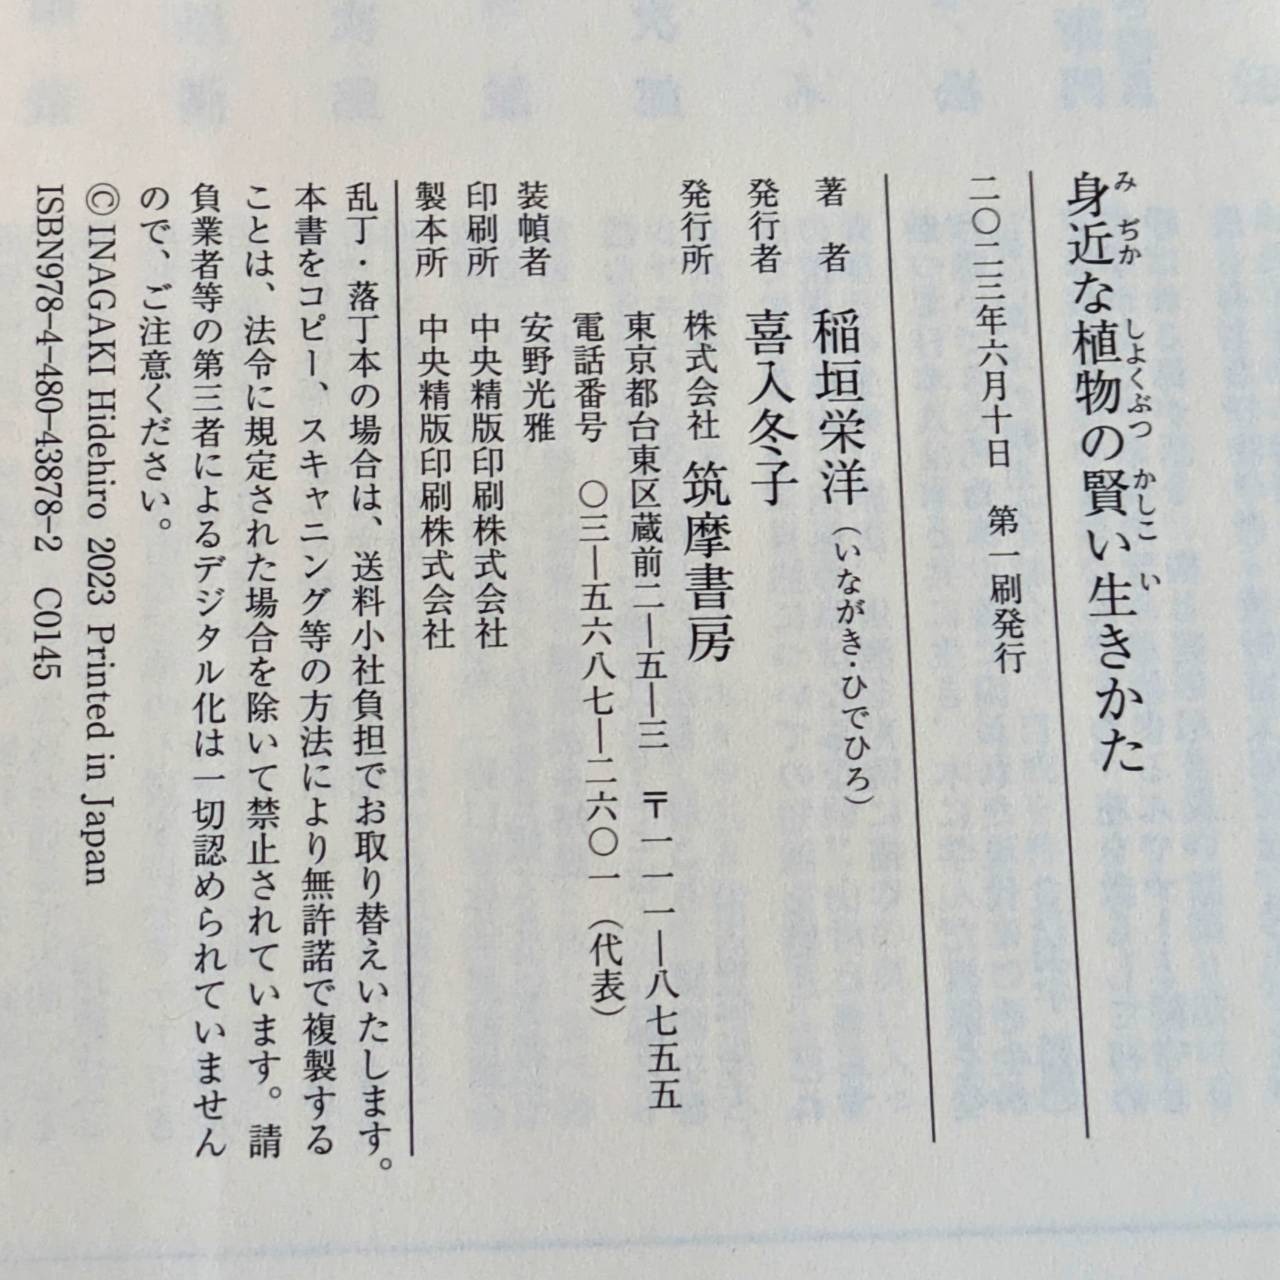 身近な植物の賢い生きかた
みぢか しょくぶつ かしこ い
二〇二三年六月十日 第一刷発行
著者 稲垣栄洋（いながき・ひでひろ）
発行者 喜入冬子
発行所 株式会社 筑摩書房
東京都台東区蔵前二―五―三 〒一一一―八七五五
電話番号 〇三―五六八七―二六〇一（代表）
装幀者 安野光雅
印刷所 中央精版印刷株式会社
製本所 中央精版印刷株式会社
乱丁・落丁本の場合は、送料小社負担でお取り替えいたします。
本書をコピー、スキャニング等の方法により無許諾で複製する
ことは、法令に規定された場合を除いて禁止されています。請
負業者等の第三者によるデジタル化は一切認められていません
ので、ご注意ください。
© INAGAKI Hidehiro 2023 Printed in Japan
ISBN978-4-480-43878-2 C0145